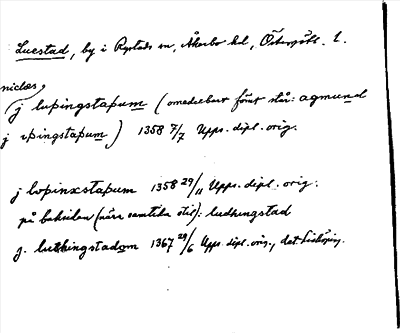 Lucstad, by i Rystads sn, Åkerbo hd, Östergötl. l.
niclos,
j luþingstaþum (omedelbart förut står: agmund
j iþingstaþum) 1358 7/7 Upps. dipl. orig.
j loþinxstaþum 1358 29/11 Upps. dipl. orig.
på baksidan (nära samtida stil): ludhingstad
j. luthingstadom 1367 29/6 Upps. dipl. orig., dat. Linköping.